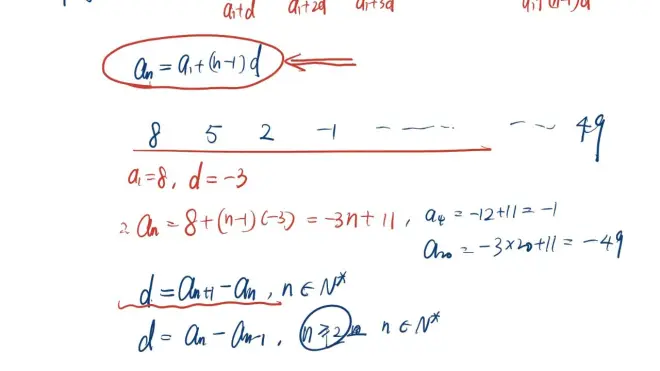 a₁+d a₁+2d a₁+3d a₁+(n-1)d
aₙ=a₁+(n-1)d
8 5 2 -1 ------ --- 49
a₁=8, d=-3
2. aₙ=8+(n-1)(-3)=-3n+11, a₄=-12+11=-1
a₂₀=-3×20+11=-49
d=aₙ₊₁-aₙ, n∈N*
d=aₙ-aₙ₋₁, n≥2 n∈N*